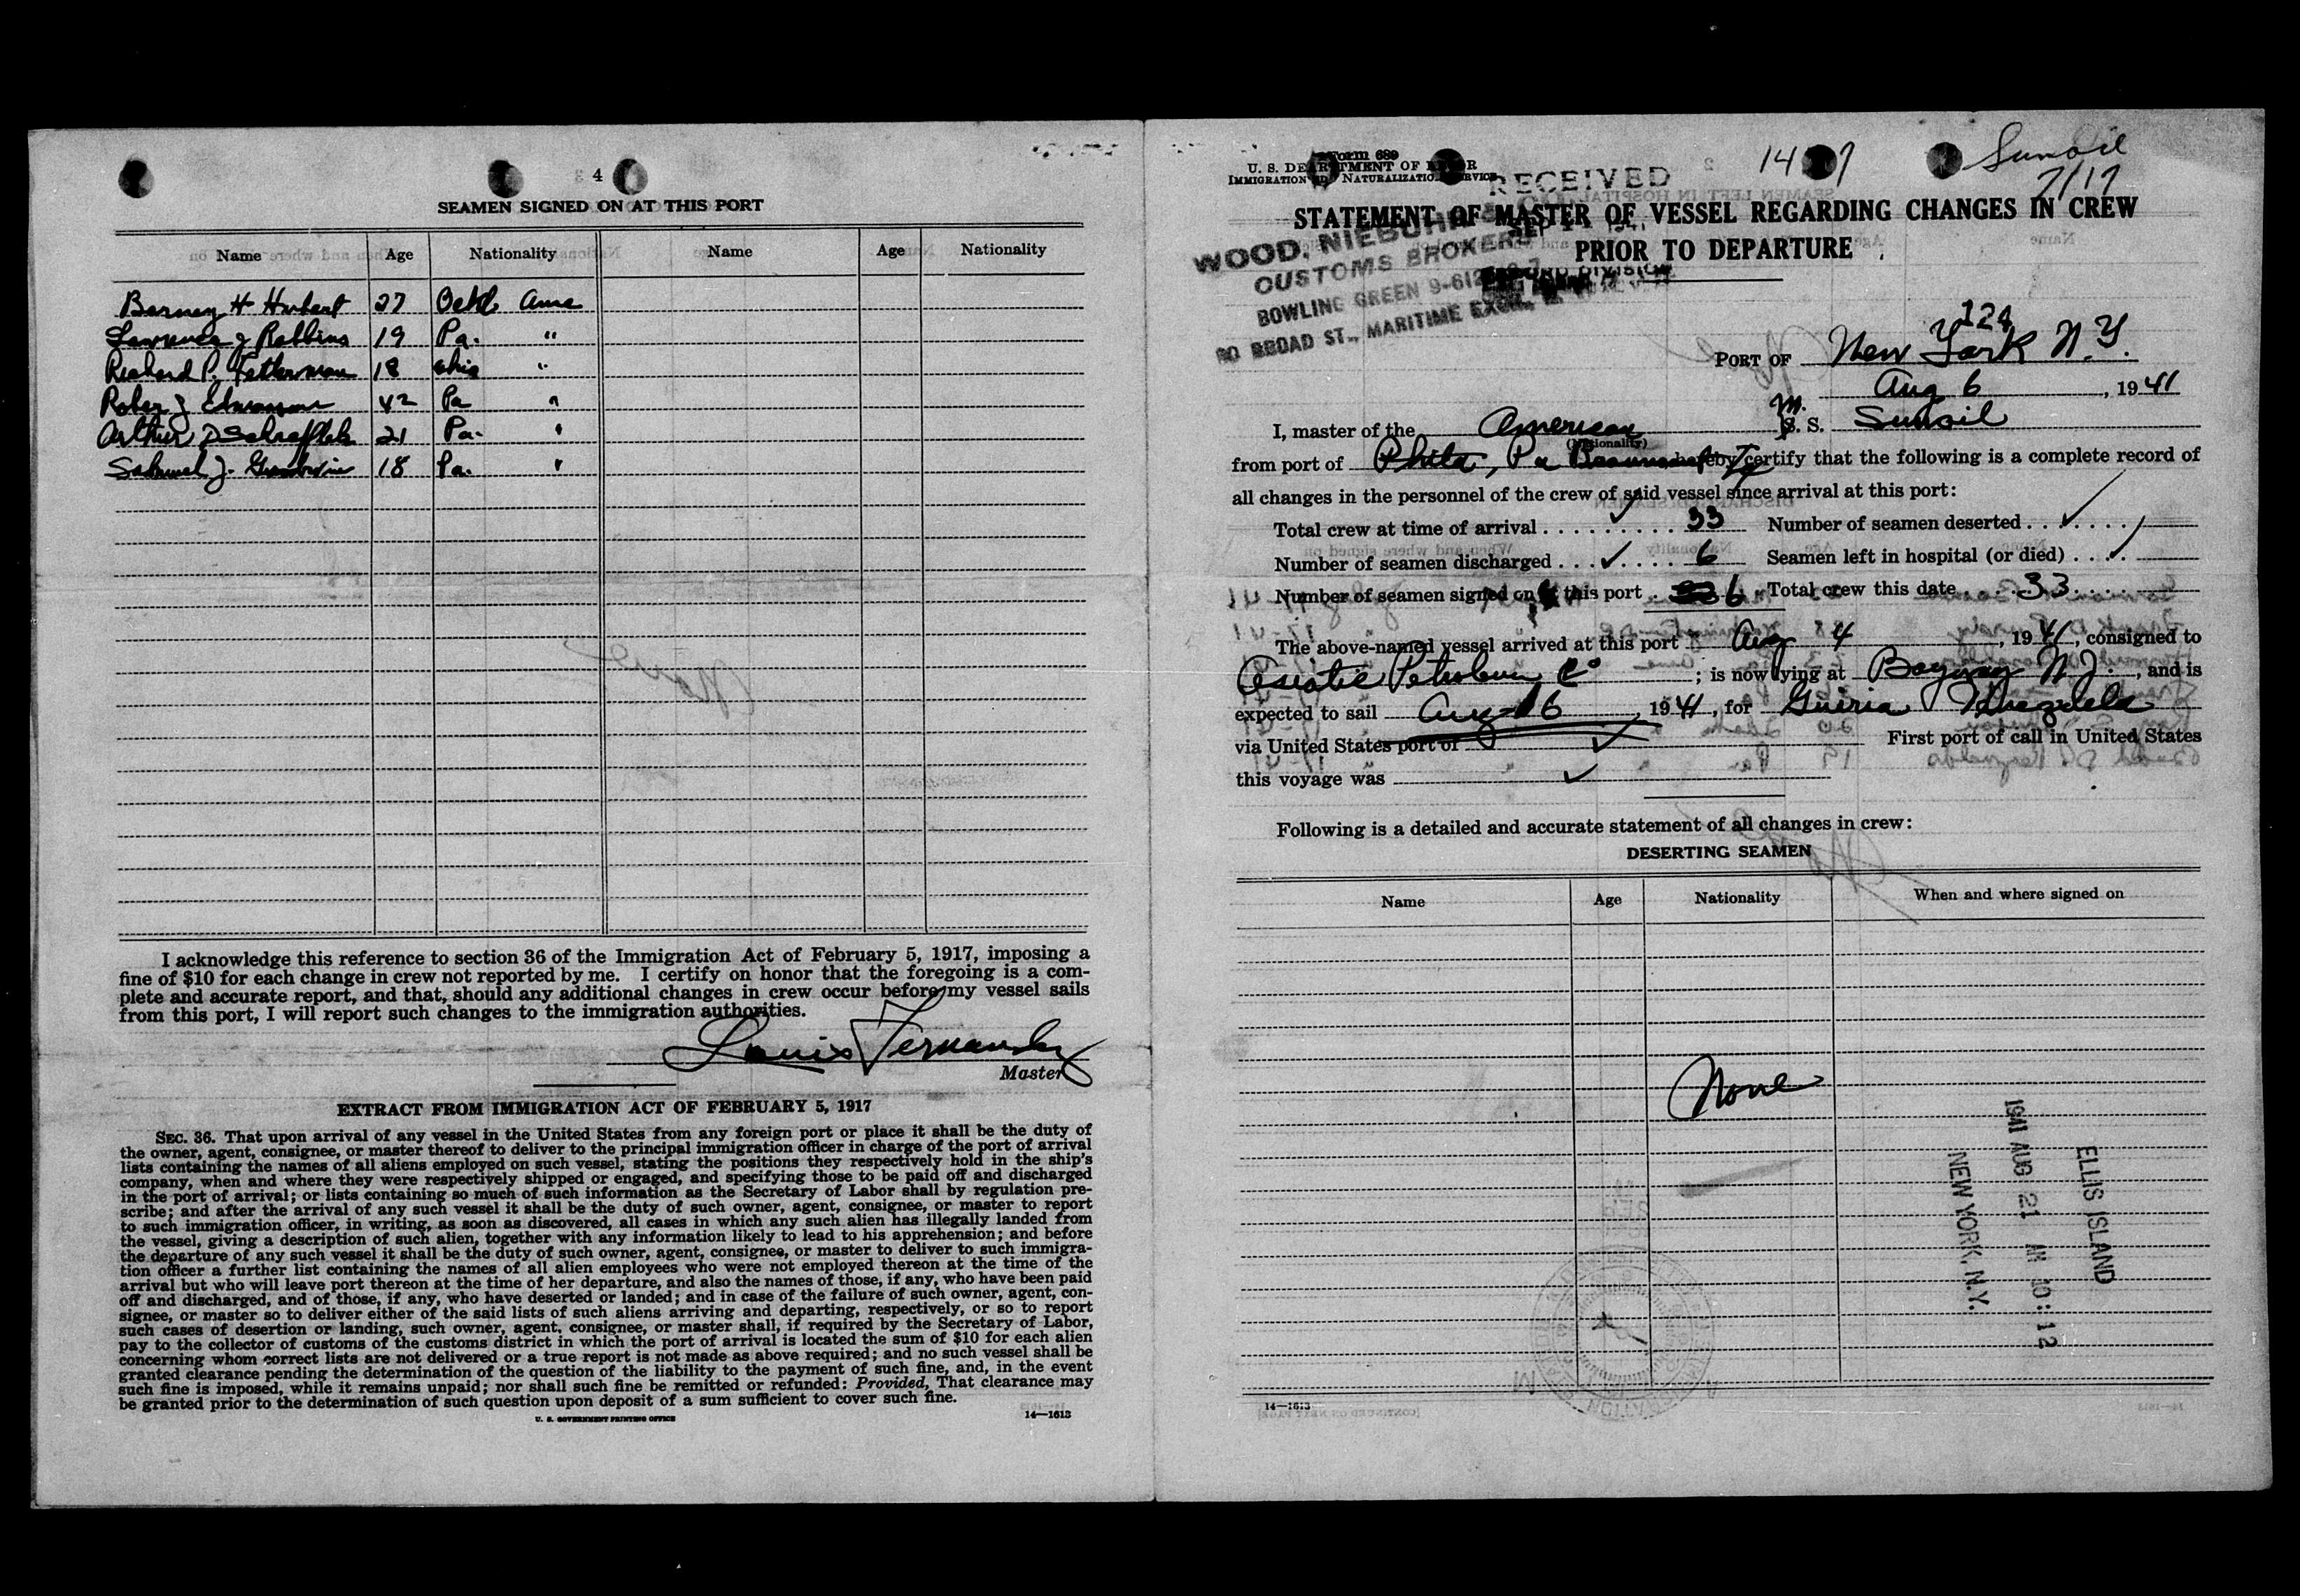 4
SEAMEN SIGNED ON AT THIS PORT
Name Age Nationality Name Age Nationality
Barney H Hubert 27 Ame
Lawrence J Robbins 19 Pa. "
Richard P. Fetterman 18 Ohio "
42 Pa "
Arthur D 21 Pa. "
Samuel J. 18 Pa. "
I acknowledge this reference to section 36 of the Immigration Act of February 5, 1917, imposing a
fine of $10 for each change in crew not reported by me. I certify on honor that the foregoing is a com-
plete and accurate report, and that, should any additional changes in crew occur before my vessel sails
from this port, I will report such changes to the immigration authorities.
Louis Fernandez
Master
EXTRACT FROM IMMIGRATION ACT OF FEBRUARY 5, 1917
SEC. 36. That upon arrival of any vessel in the United States from any foreign port or place it shall be the duty of
the owner, agent, consignee, or master thereof to deliver to the principal immigration officer in charge of the port of arrival
lists containing the names of all aliens employed on such vessel, stating the positions they respectively hold in the ship's
company, when and where they were respectively shipped or engaged, and specifying those to be paid off and discharged
in the port of arrival; or lists containing so much of such information as the Secretary of Labor shall by regulation pre-
scribe; and after the arrival of any such vessel it shall be the duty of such owner, agent, consignee, or master to report
to such immigration officer, in writing, as soon as discovered, all cases in which any such alien has illegally landed from
the vessel, giving a description of such alien, together with any information likely to lead to his apprehension; and before
the departure of any such vessel it shall be the duty of such owner, agent, consignee, or master to deliver to such immigra-
tion officer a further list containing the names of all alien employees who were not employed thereon at the time of the
arrival but who will leave port thereon at the time of her departure, and also the names of those, if any, who have been paid
off and discharged, and of those, if any, who have deserted or landed; and in case of the failure of such owner, agent, con-
signee, or master so to deliver either of the said lists of such aliens arriving and departing, respectively, or so to report
such cases of desertion or landing, such owner, agent, consignee, or master shall, if required by the Secretary of Labor,
pay to the collector of customs of the customs district in which the port of arrival is located the sum of $10 for each alien
concerning whom correct lists are not delivered or a true report is not made as above required; and no such vessel shall be
granted clearance pending the determination of the question of the liability to the payment of such fine, and, in the event
such fine is imposed, while it remains unpaid; nor shall such fine be remitted or refunded: Provided, That clearance may
be granted prior to the determination of such question upon deposit of a sum sufficient to cover such fine.
U. S. GOVERNMENT PRINTING OFFICE 14—1613
Form 689
U. S. DEPARTMENT OF LABOR
IMMIGRATION AND NATURALIZATION SERVICE
Sunoil
7/17
RECEIVED
STATEMENT OF MASTER OF VESSEL REGARDING CHANGES IN CREW
PRIOR TO DEPARTURE
WOOD, NIEBUHR &
CUSTOMS BROKERS
BOWLING GREEN
80 BROAD ST., MARITIME
124
PORT OF New York N.Y.
Aug 6, 1941
I, master of the American M. S. S. Sunoil
(Nationality)
from port of Phila, Pa hereby certify that the following is a complete record of
all changes in the personnel of the crew of said vessel since arrival at this port:
Total crew at time of arrival 33 Number of seamen deserted
Number of seamen discharged 6 Seamen left in hospital (or died)
Number of seamen signed on this port 6 Total crew this date 33
The above-named vessel arrived at this port Aug 4, 1941, consigned to
Asiatic Petroleum Co; is now lying at Bayway N.J., and is
expected to sail Aug 6, 1941, for Guiria Venezuela
via United States port of First port of call in United States
this voyage was
Following is a detailed and accurate statement of all changes in crew:
DESERTING SEAMEN
Name Age Nationality When and where signed on
None
ELLIS ISLAND
1941 AUG 21 AM 10:12
NEW YORK, N.Y.
14—1613